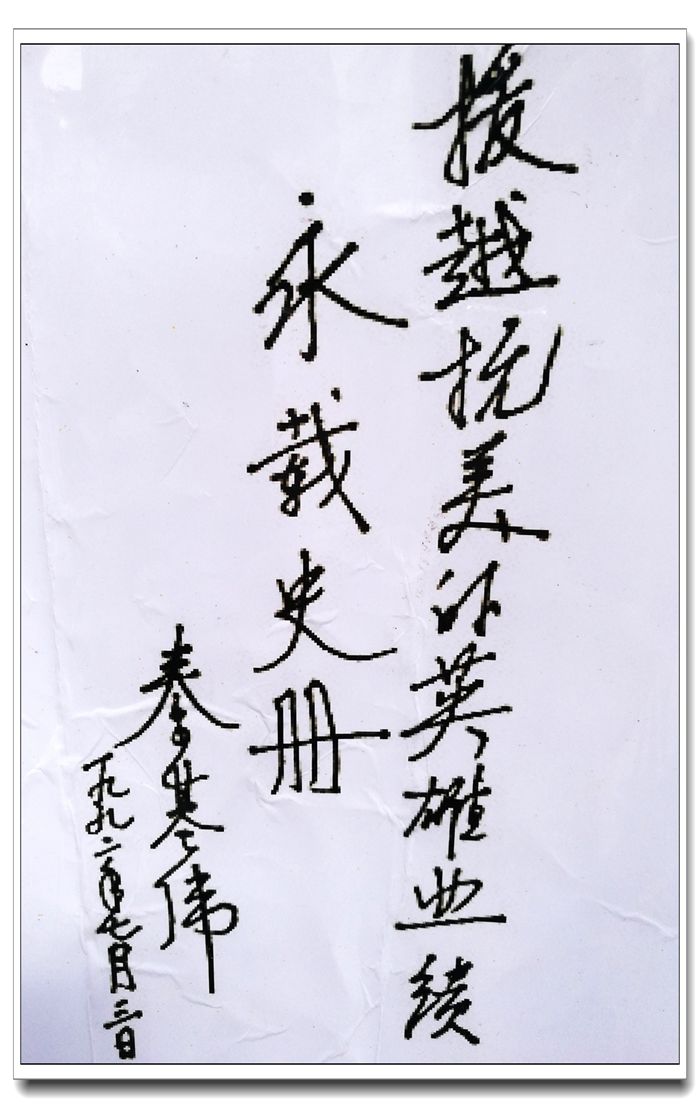 援越抗美的英雄业绩
永载史册
秦基伟
一九九二年七月三日